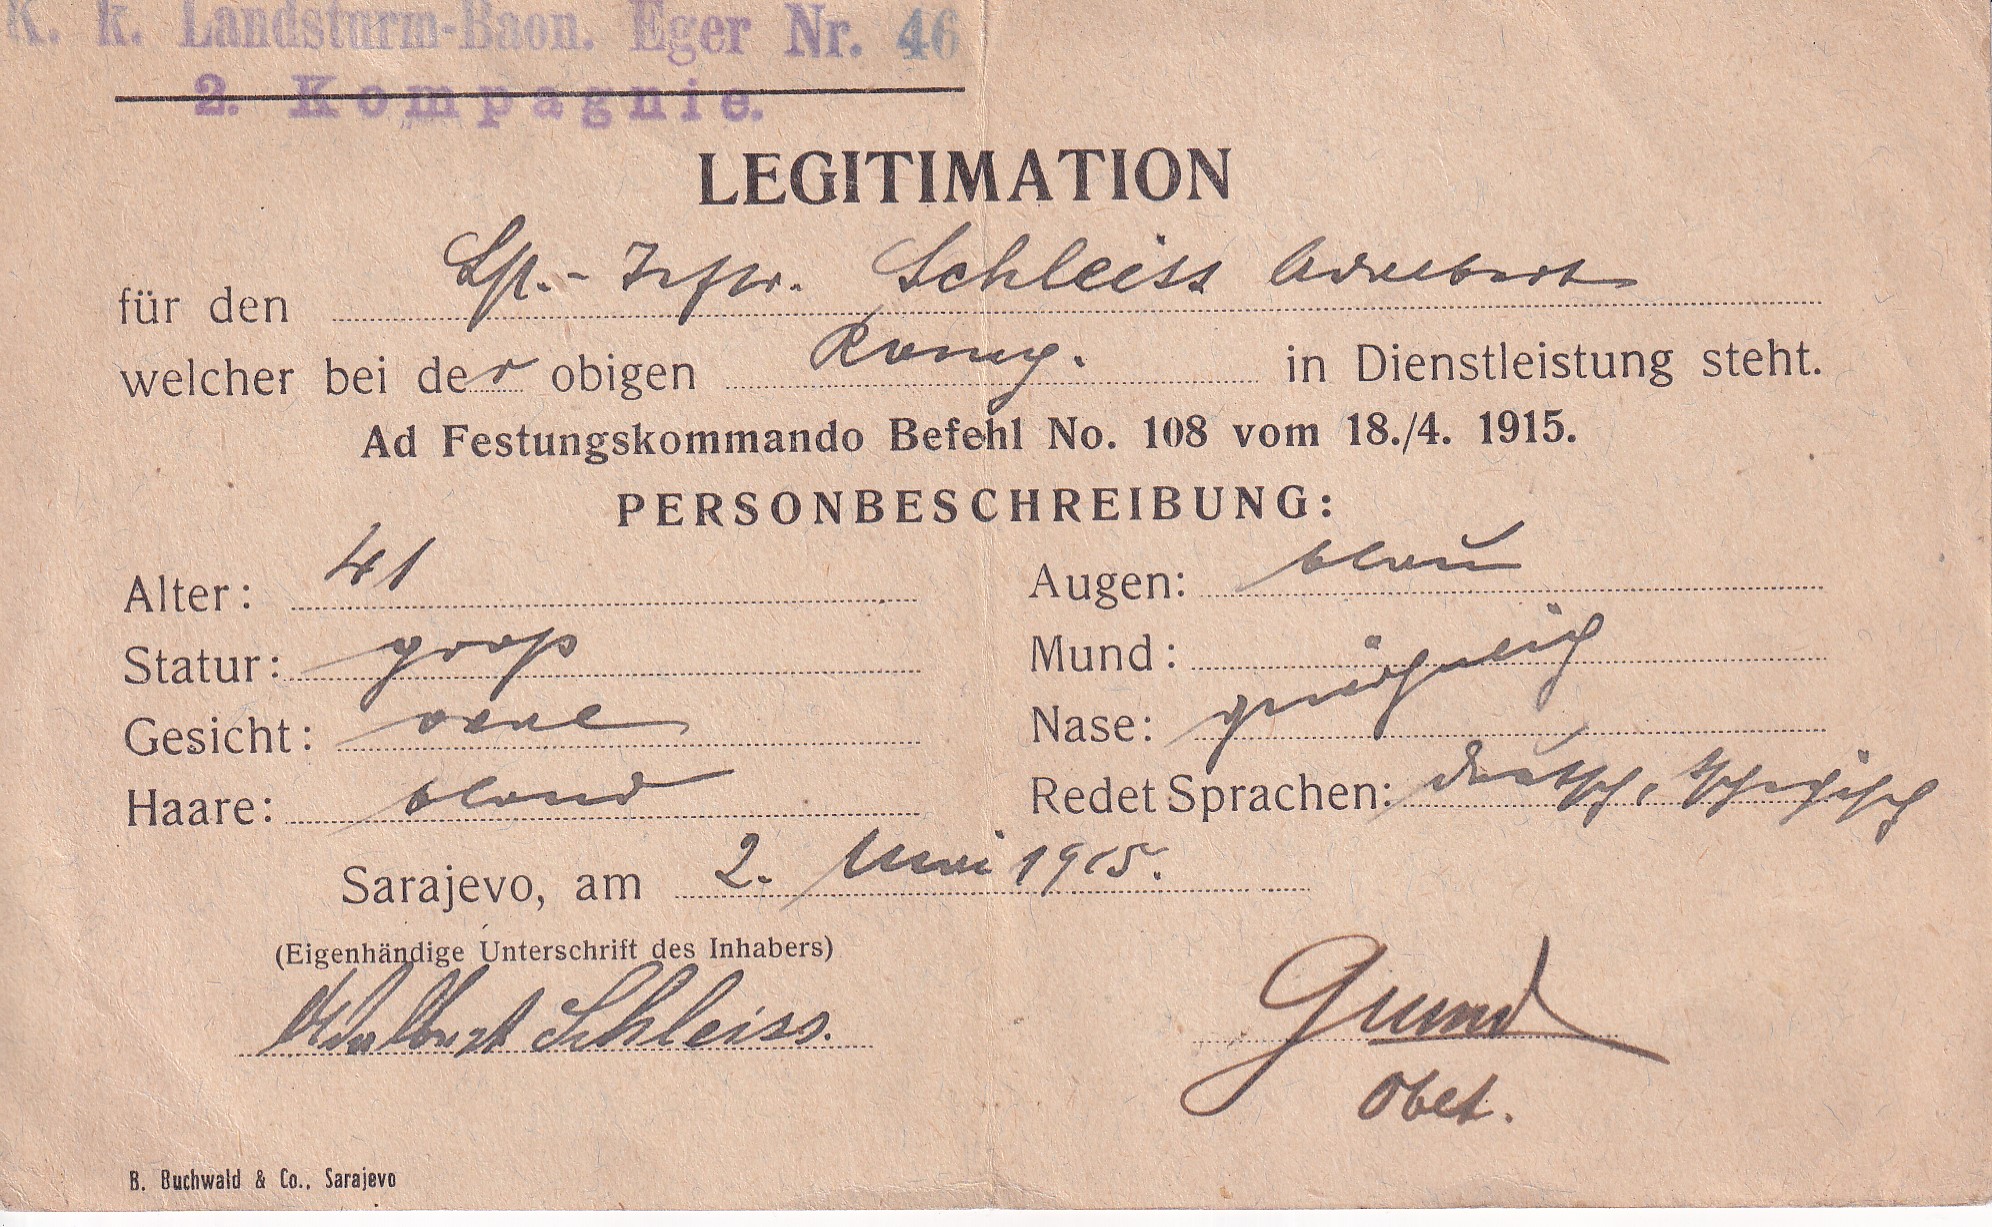 K. k. Landsturm-Baon. Eger Nr. 46
2. Kompagnie.
LEGITIMATION
für den Lst.-Infst. Schleiss Adalbert
welcher bei der obigen Komp. in Dienstleistung steht.
Ad Festungskommando Befehl No. 108 vom 18./4. 1915.
PERSONBESCHREIBUNG:
Alter: 41
Augen: blau
Statur: groß
Mund:
Gesicht: oval
Nase:
Haare: blond
Redet Sprachen: deutsch, tschechisch
Sarajevo, am 2. Mai 1915.
(Eigenhändige Unterschrift des Inhabers)
Adalbert Schleiss.
Grund
Oblt.
B. Buchwald & Co., Sarajevo